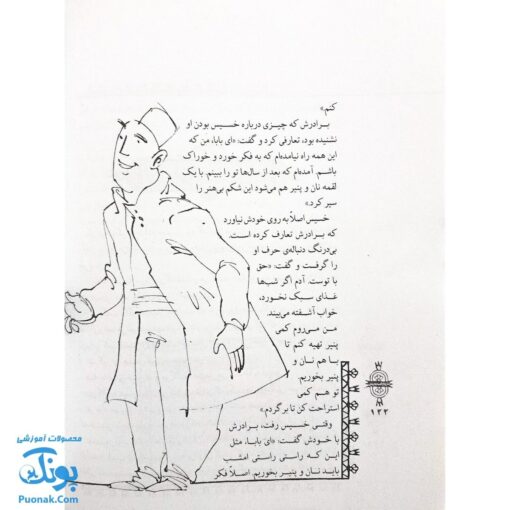 کنم.»
برادرش که چیزی درباره خسیس بودن او
نشنیده بود، تعارفی کرد و گفت: «ای بابا، من که
این همه راه نیامده‌ام که به فکر خورد و خوراک
باشم. آمده‌ام که بعد از سال‌ها تو را ببینم. با یک
لقمه نان و پنیر هم می‌شود این شکم بی‌هنر را
سیر کرد.»
خسیس اصلاً به روی خودش نیاورد
که برادرش تعارف کرده است.
بی‌درنگ دنباله‌ی حرف او
را گرفت و گفت: «حق
با توست. آدم اگر شب‌ها
غذای سبک نخورد،
خواب آشفته می‌بیند.
من می‌روم کمی
پنیر تهیه کنم تا
با هم نان و
پنیر بخوریم.
تو هم کمی
استراحت کن تا برگردم.»
وقتی خسیس رفت، برادرش
با خودش گفت: «ای بابا، مثل
این که راستی راستی امشب
باید نان و پنیر بخوریم. اصلاً فکر
۱۲۲
محصولات آموزشی
پونک
Puonak.Com